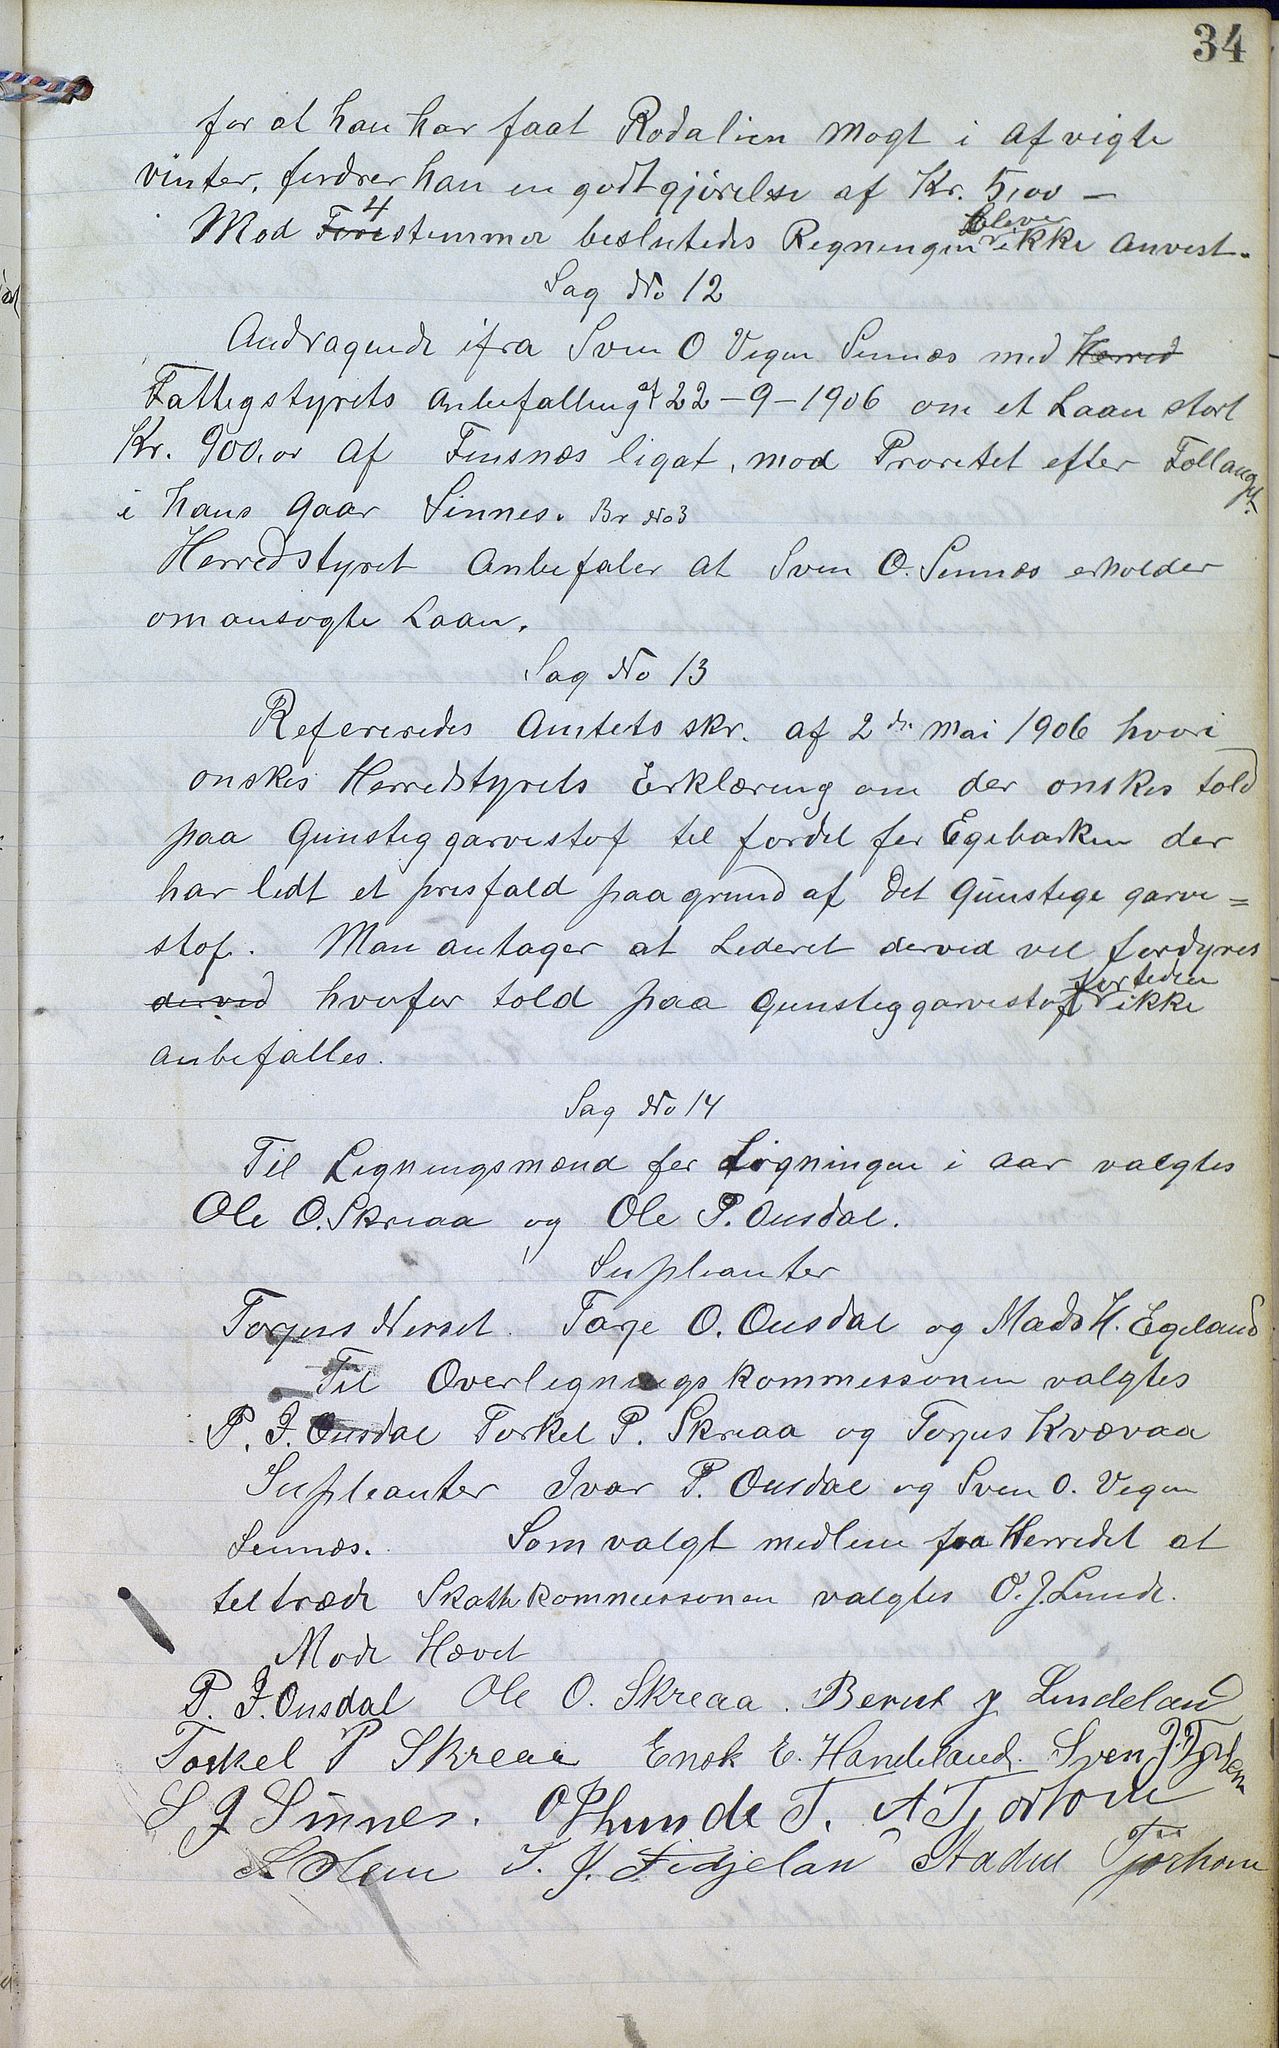 34
for at han har faat Rodalien Mogt i afvigte
vinter, fordrer han en godtgjørelse af Kr. 5,00 –
Mod 4 stemmer beslutedes Regningen bliver ikke anvist.
Sag No 12
Andragende ifra Sven O Vegen Sinnæs med Herred
Fattigstyrets Anbefalling af 22-9-1906 om et Laan stort
Kr. 900,00 af Finsnæs ligat, mod Proretet efter
i hans Gaar Sinnes. Br No 3
Herredstyret Anbefaler at Sven O. Sinnæs erholder
omansøgte Laan.
Sag No 13
Refereredes Amtets skr. af 2de Mai 1906 hvori
ønskes Herredstyrets Erklæring om der ønskes told
paa Gunstiggarvestof til fordel for Egebarken der
har lidt et prisfald paagrund af det Günstige garve=
stof. Man antager at Lederet derved vil fordyres
derved hvorfor told paa Gunstiggarvestof fortiden ikke
anbefalles.
Sag No 14
Til Ligningsmænd for Ligningen i aar valgtes
Ole O. Skreaa og Ole P. Ousdal.
Supleanter
Torjus Nerset. Tarje O. Ousdal og Mads H. Egeland
Til Overlignings kommissonen valgtes
P. I. Ousdal Torkel P. Skreaa og Torjus Kvævaa
Supleanter Ivar P. Ousdal og Sven O. Vegen
Sinnæs. Som valgt medlem fra Herredet at
tiltræde Skattekommissonen valgtes O. J. Lunde.
Møde Hævet
P. I. Ousdal Ole O. Skreaa. Berent J Lindeland
Torkel P Skreaa Enok E. Handeland. Sven J.
S J Sinnes. O P Lunde T. A Tjørhom
T. J. Fidjelan Stadul Tjørhom